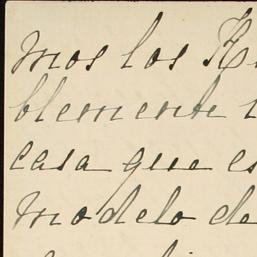 mos los
blemente
casa que es
modelo de